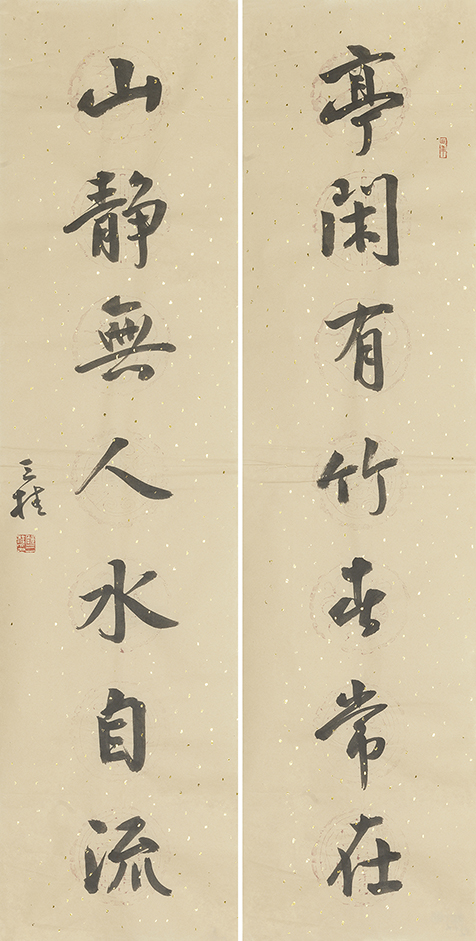 亭閑有竹春常在
山静無人水自流
三桂